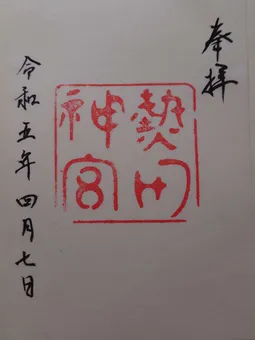 奉拝
熱田
神宮
令和五年四月七日